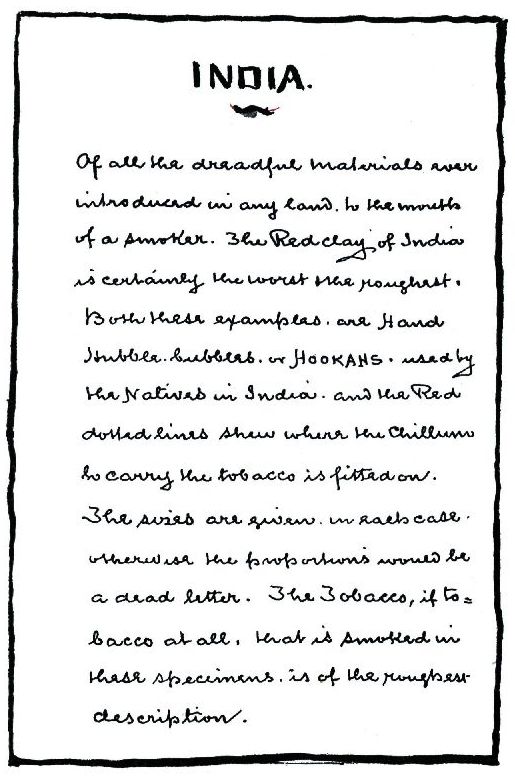 INDIA.
Of all the dreadful materials ever
introduced in any land. to the mouth
of a smoker. The Red clay of India
is certainly the worst & the roughest.
Both these examples. are Hand
Hubble-bubbles. or HOOKAHS. used by
the Natives in India. and the Red
dotted lines shew where the Chillum
to carry the tobacco is fitted on.
The sizes are given. in each case.
otherwise the proportions would be
a dead letter. The Tobacco, if to=
bacco at all, that is smoked in
these specimens. is of the roughest
description.